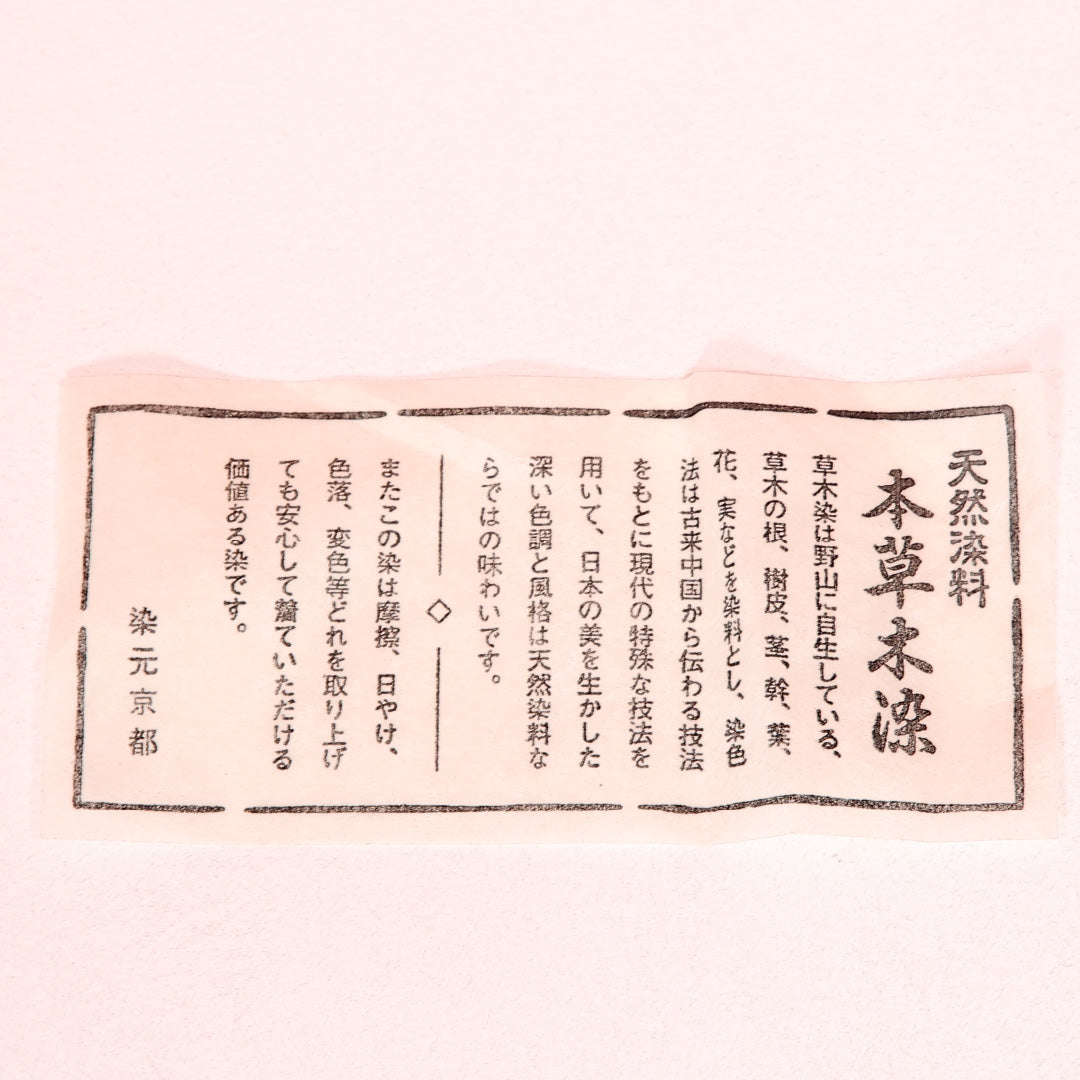 天然染料
本草木染
草木染は野山に自生している、
草木の根、樹皮、茎、幹、葉、
花、実などを染料とし、染色
法は古来中国から伝わる技法
をもとに現代の特殊な技法を
用いて、日本の美を生かした
深い色調と風格は天然染料な
らではの味わいです。
またこの染は摩擦、日やけ、
色落、変色等どれを取り上げ
ても安心して着ていただける
価値ある染です。
染元京都